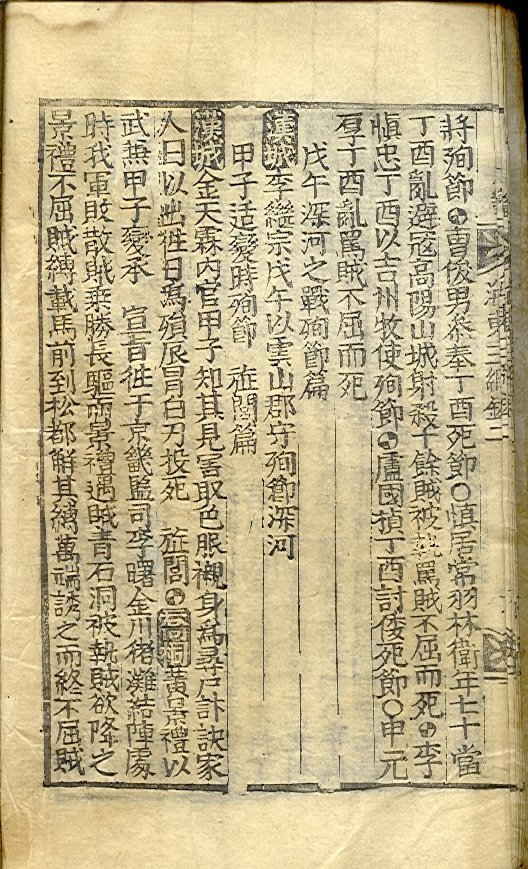 將殉節○曹俊男參奉丁酉死節○愼居常羽林衛年七十當
丁酉亂避冦高陽山城射殺十餘賊被執罵賊不屈而死○李
愼忠丁酉以吉州牧使殉節○盧國楨丁酉討倭死節○申元
厚丁酉亂罵賊不屈而死
戊午深河之戰殉節篇
漢城李繼宗戊午以雲山郡守殉節深河
甲子适變時殉節 㫌閭篇
漢城金天霖內官甲子知其見害取色服襯身爲尋尸計訣家
人曰以出徃日爲殞辰冒白刃投死 㫌閭○黃景禮以
武兼甲子變承 宣旨徃于京畿監司李曙金川猪灘結陣處
時我軍敗散賊乘勝長驅而景禮遇賊青石洞被執賊欲降之
景禮不屈賊縛載馬前到松都解其縛萬端誘之而終不屈賊
三綱錄二